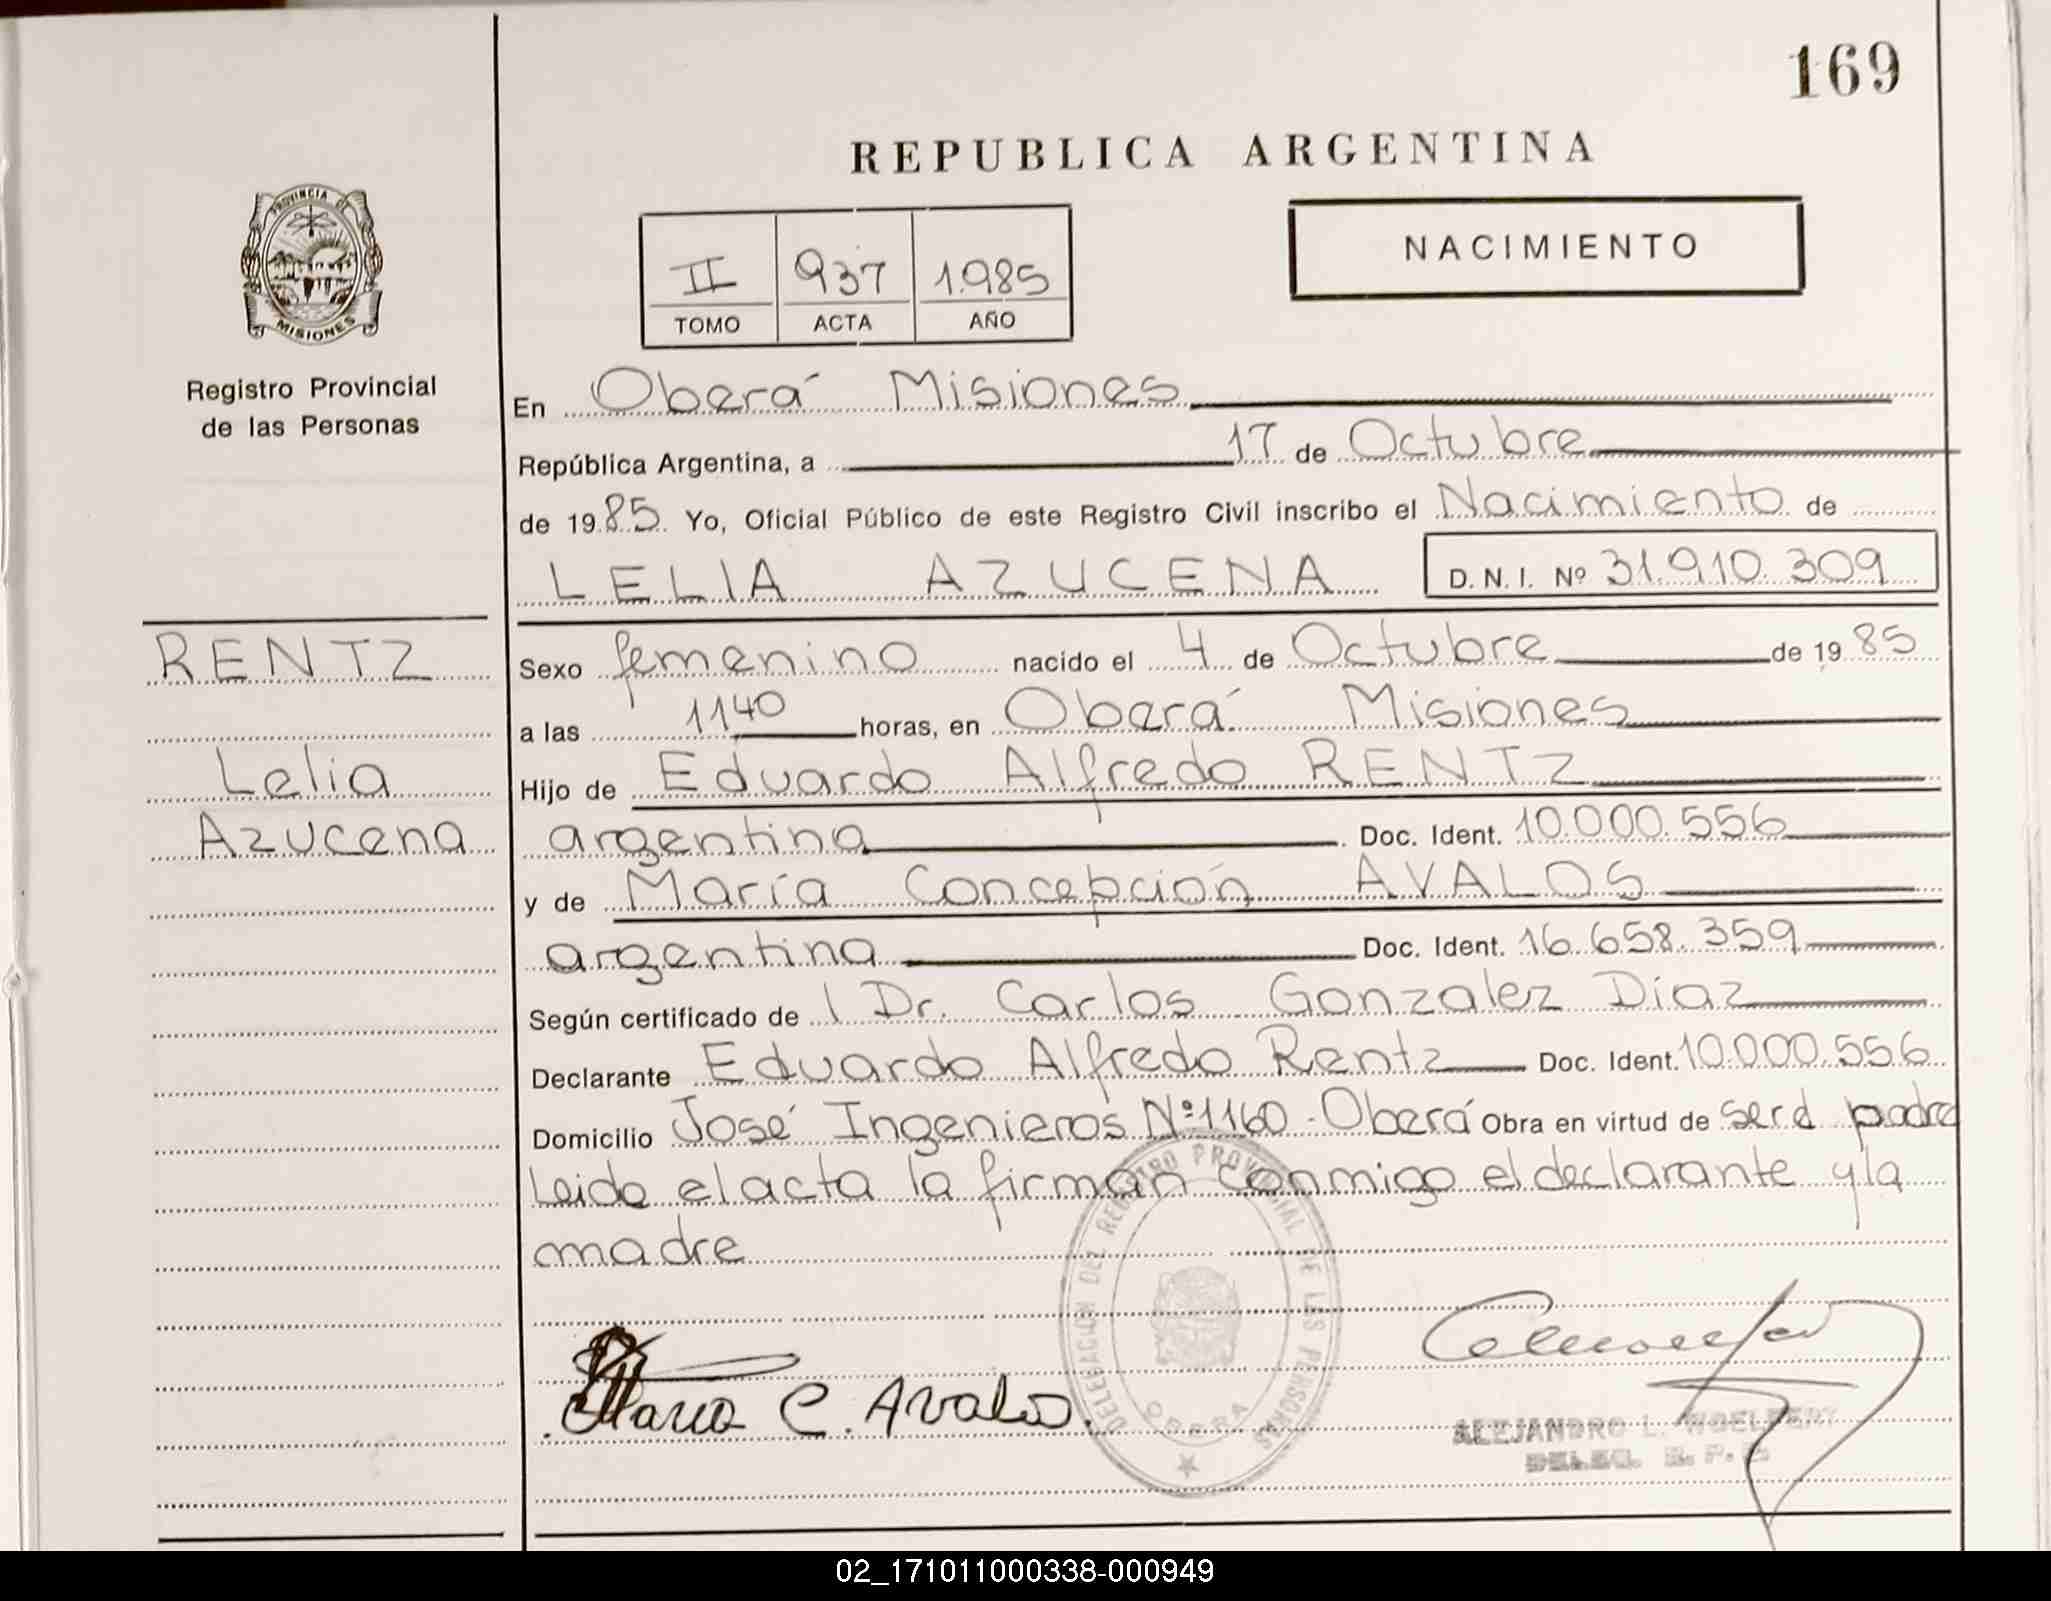 169
REPUBLICA ARGENTINA
PROVINCIA DE
MISIONES
Registro Provincial
de las Personas
II 937 1985
TOMO ACTA AÑO
NACIMIENTO
En Oberá Misiones
República Argentina, a 17 de Octubre
de 1985 Yo, Oficial Público de este Registro Civil inscribo el Nacimiento de
LELIA AZUCENA D.N.I. Nº 31.910.309
RENTZ
Lelia
Azucena
Sexo femenino nacido el 4 de Octubre de 1985
a las 1140 horas, en Oberá Misiones
Hijo de Eduardo Alfredo RENTZ
argentina Doc. Ident. 10.000.556
y de María Concepción AVALOS
argentina Doc. Ident. 16.658.359
Según certificado de l Dr. Carlos Gonzalez Díaz
Declarante Eduardo Alfredo Rentz Doc. Ident. 10.000.556
Domicilio José Ingenieros Nº 1160 - Oberá Obra en virtud de ser el padre
Leida el acta la firman conmigo el declarante y la
madre
DELEGACION DEL REGISTRO PROVINCIAL DE LAS PERSONAS
OBERA
Maria C. Avalos.
ALEJANDRO L. WOELFERT
DELEG. R. P. P.
02_171011000338-000949